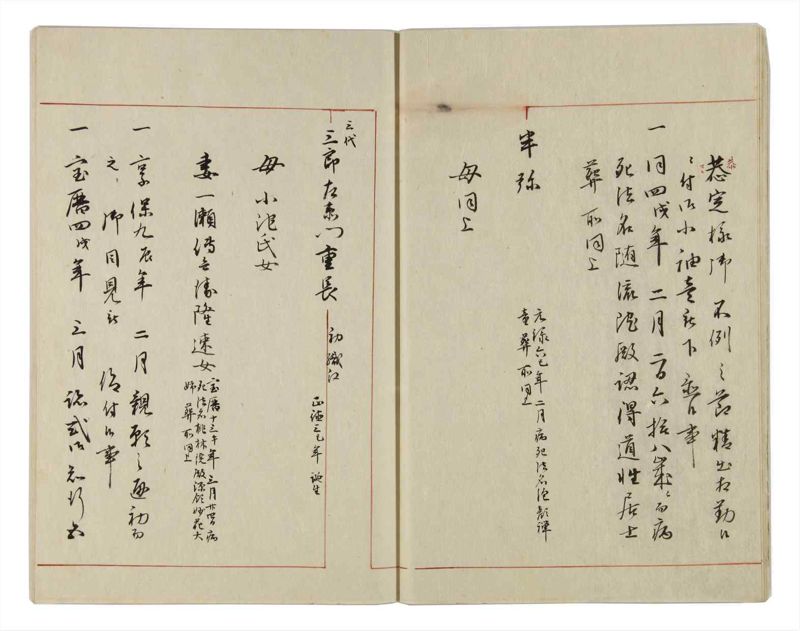 恭定様御不例之節精出相勤候
ニ付御小袖壱被下置候事
一 同四戌年二月 六拾八歳ニ而病
死法名随流院殿認得道性居士
葬所同上
半弥
元禄六巳年二月病死法名 禅
童葬所同上
母同上
三代
三郎左衛門重長
初織江
正徳三巳年誕生
母小池氏女
妻一瀬傳兵衛隆速女
宝暦十三午年三月 病
死法名桃林院殿 妙花大
姉葬所同上
一 享保九辰年二月親願之通初而
之御目見被仰付候事
一 宝暦四戌年三月 弐百石